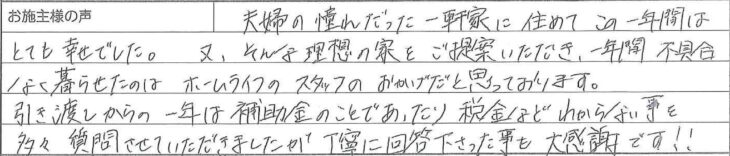 お施主様の声
夫婦の憧れだった一軒家に住めてこの一年間は
とても幸せでした。又、そんな理想の家をご提案いただき、一年間不具合
なく暮らせたのはホームライフのスタッフのおかげだと思っております。
引き渡しからの一年は補助金のことであったり税金などわからない事を
多々質問させていただきましたが丁寧に回答下さった事も大感謝です!!